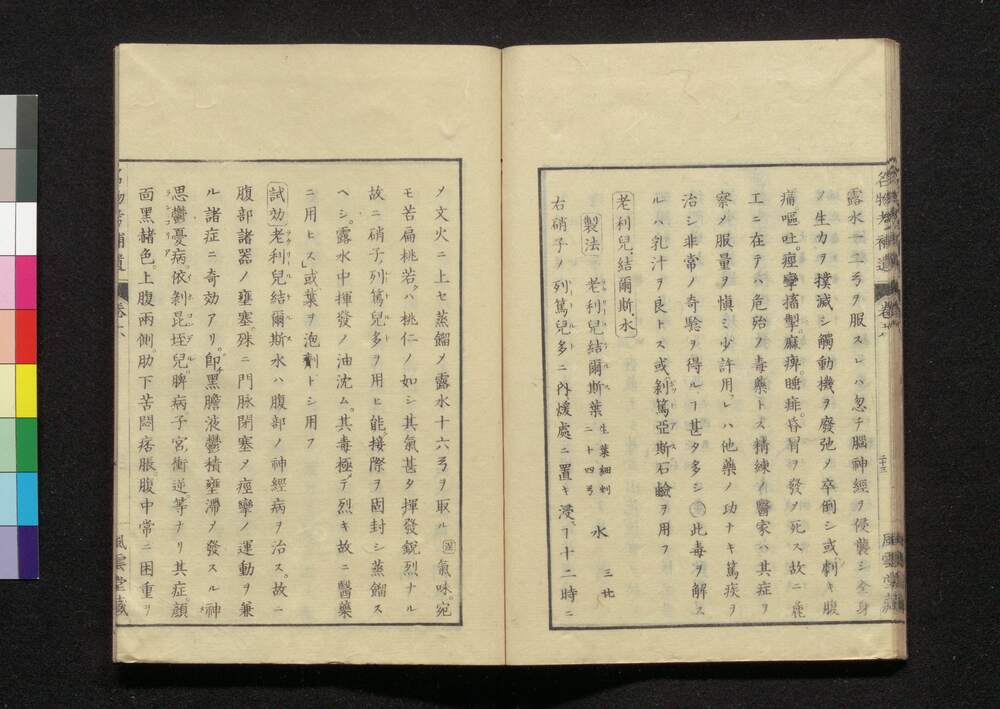 露水一二弓ヲ服スレハ忽チ腦神經ヲ侵襲シ全身
ノ生力ヲ撲滅シ觸動機ヲ廢弛メ卒倒シ或ハ劇キ腹
痛嘔吐痙攣搐掣麻痺聴痱昏冒ヲ發メ死ス故ニ麁
工ニ在テハ危殆ノ毒藥トス精練ノ醫家ハ其症ヲ
察メ服量ヲ愼ミ少許用レハ他藥ノ功ナキ篤疾ヲ
治シ非常ノ奇驗ヲ得ルヿ甚タ多シ此毒ヲ解ス
ルハ乳汁ヲ良トス或剝篤亞斯石鹼ヲ用フ
老利兒結爾斯水
製法 老利兒結爾斯葉 生葉細剉 二十四弓 水 三
右硝子ノ列篤兒多ニ內煖處ニ置キ浸スヿ十二時ニ
名物考補遺 卷六 二十三 風雲堂藏
メ文火ニ上セ蒸餾メ露水十六弓ヲ取ル 氣味 宛
モ苦扁桃若クハ桃仁ノ如シ其氣甚タ揮發銳烈ナル
故ニ硝子ノ列篤兒多ヲ用ヒ能ク接際ヲ固封シ蒸餾ス
ヘシ露水中揮發ノ油沈ム其毒極テ烈キ故ニ醫藥
ニ用ヒス或葉ヲ泡劑トシ用フ
試効 老利兒結爾斯水ハ腹部ノ神經病ヲ治ス故ニ
腹部諸器ノ壅塞殊ニ門脉閉塞メ痙攣ノ運動ヲ兼
ル諸症ニ奇効アリ卽黑膽液鬱積壅滯メ發スル神
思鬱憂病依剝昆垤兒脾病子宮衝逆等ナリ其症顔
面黑赭色上腹兩側肋下苦悶痞脹腹中常ニ困重ヲ
名物考補遺 卷六 風雲堂藏